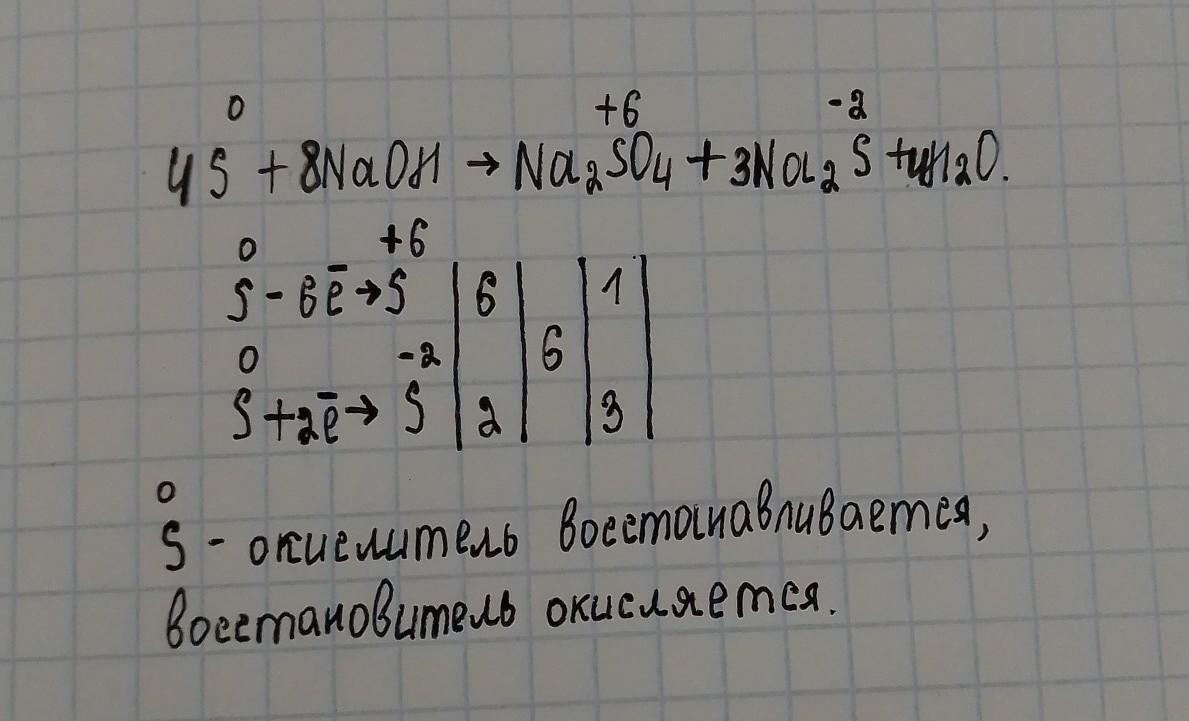 0 +6 -2
4S + 8NaOH → Na2SO4 + 3Na2S + 4H2O.
0 +6
S - 6ē → S | 6 | | 1 |
0 -2 6
S + 2ē → S | 2 | | 3 |
0
S - окислитель восстанавливается,
восстановитель окисляется.